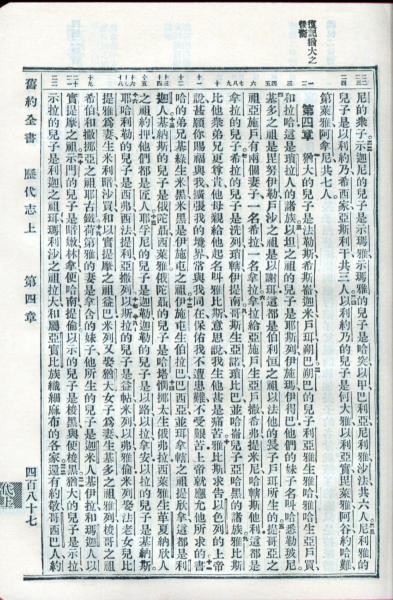 復記猶大之苗裔
尼的衆子示迦尼的兒子是示瑪雅示瑪雅的兒子是哈突以甲巴利亞尼利雅沙法共六人尼利雅的
兒子是以利約乃希西家亞斯利干共三人以利約乃的兒子是何大雅以利亞實毘萊雅阿谷約哈難
第萊雅阿拿尼共七人
第四章 猶大的兒子是法勒斯希斯崙迦米戶珥朔巴朔巴的兒子利亞雅生雅哈雅哈生亞戶買
和拉哈這是瑣拉人的諸族以坦之祖的兒子是耶斯列伊施瑪伊得巴他們的妹子名叫哈悉勒玻尼
基多之祖是毘努伊勒戶沙之祖是以謝珥這都是伯利恒之祖以法他的長子戶珥所生的提哥亞之
祖亞施戶有兩個妻子一名希拉一名拿拉拿拉給亞施戶生亞戶撒希弗提米尼哈轄斯他利這都是
拿拉的兒子希拉的兒子是洗列瑣轄伊提南哥斯生亞諾瑣比巴並哈崙兒子亞哈黑的諸族雅比斯
比他衆弟兄更尊貴他母親給他起名叫雅比斯意思說我生他甚是痛苦雅比斯求告以色列的上帝
說甚願你賜福與我擴張我的境界常與我同在保佑我不遭患難不受艱苦上帝就應允他所求的書
哈的弟兄基綠生米黑米黑是伊施屯之祖伊施屯生伯拉巴巴西亞並珥拿轄之祖提欣拿這都是利
迦人基納斯的兒子是俄陀聶西萊雅俄陀聶的兒子是哈塔憫挪太生俄弗拉西萊雅生革夏納欣人
之祖約押他們都是匠人耶孚尼的兒子是迦勒迦勒的兒子是以路以拉拿安以拉的兒子是基納斯
耶哈利勒的兒子是西弗西法提利亞撒列以斯拉的兒子是益帖米列以弗雅倫米列娶法老女兒比
提雅爲妻生米利暗沙買和以實提摩之祖益巴米列又娶猶大女子爲妻生基多之祖雅列梭哥之祖
希伯和撒挪亞之祖耶古鐵荷第雅的妻是拿含的妹子他所生的兒子是迦米人基伊拉和瑪迦人以
實提摩之祖示門的兒子是暗嫩林拿便哈南提倫以示的兒子是梭黑與便梭黑猶大的兒子是示拉
示拉的兒子是利迦之祖珥瑪利沙之祖拉大和屬亞實比族織細麻布的各家還有約敬哥西巴人約
舊約全書 歷代志上 第四章 四百八十七
代上